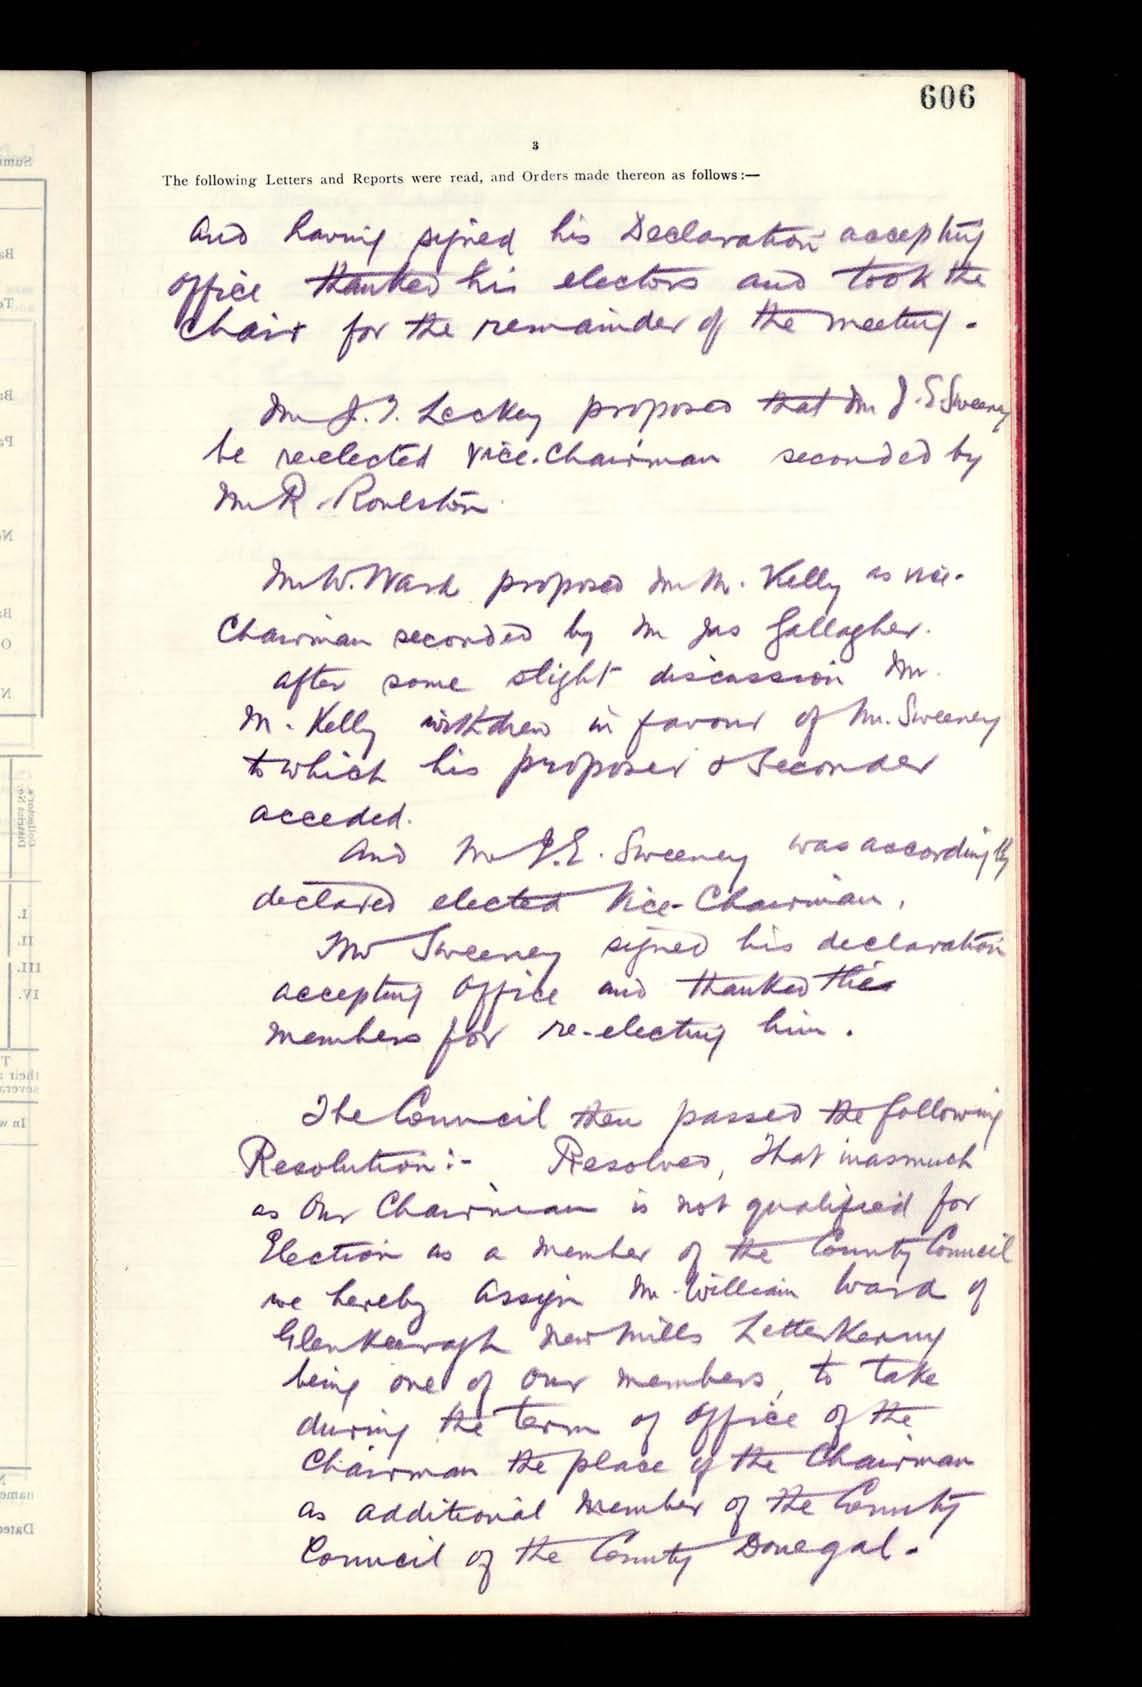 606
3
The following Letters and Reports were read, and Orders made thereon as follows:—
And having signed his Declaration accepting
office thanked his electors and took the
chair for the remainder of the meeting.
Mr J. T. Leckey proposed that Mr J. E Sweeney
be re-elected Vice-Chairman seconded by
Mr R. Roulston
Mr W. Ward proposed Mr M. Kelly as vice-
Chairman seconded by Mr Jas Gallagher.
after some slight discussion Mr.
M. Kelly withdrew in favour of Mr. Sweeney
to which his proposer & Seconder
acceded.
And Mr J. E. Sweeney was accordingly
declared elected Vice-Chairman.
Mr Sweeney signed his declaration
accepting office and thanked the
members for re-electing him.
The Council then passed the following
Resolution:- Resolved, That inasmuch
as Our Chairman is not qualified for
Election as a member of the County Council
we hereby assign Mr. William Ward of
New Mills Letterkenny
being one of our members, to take
during the term of office of the
Chairman the place of the Chairman
as additional member of the County
Council of the County Donegal.